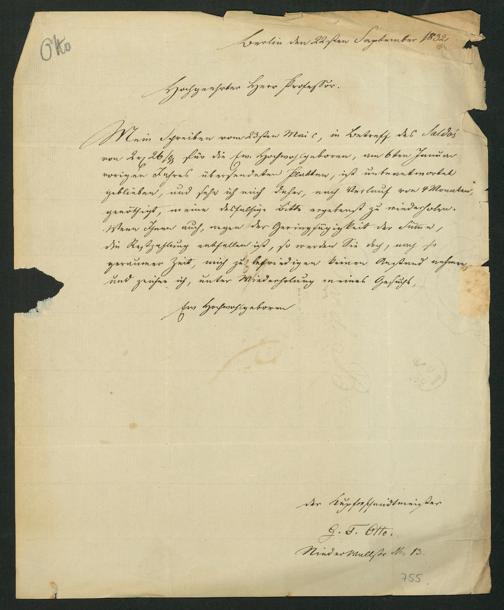 Otto
Berlin den 22sten September 1832.
Hochgeehrter Herr Professor.
Mein Schreiben vom 23sten Mai c, in Betreff des Saldos
von 2 für die Ew. Hochwohlgeboren, am 6ten Januar
vorigen Jahres übersendeten Platten, ist unbeantwortet
geblieben, und sehe ich mich daher, nach Verlauf von 4 Monaten,
genöthigt, meine desfallsige Bitte ergebenst zu wiederholen.
Wenn Ihnen auch, wegen der Geringfügigkeit der Summe,
die Restzahlung entfallen ist, so werden Sie doch, nach so
geraumer Zeit, mich zu befriedigen keinen Anstand nehmen,
und zeichne ich, unter Wiederholung meines Gesuchs,
Ew Hochwohlgeboren
der Kupferschmidtmeister
G. F. Otto.
Nieder Wallstr No. 13.
755.